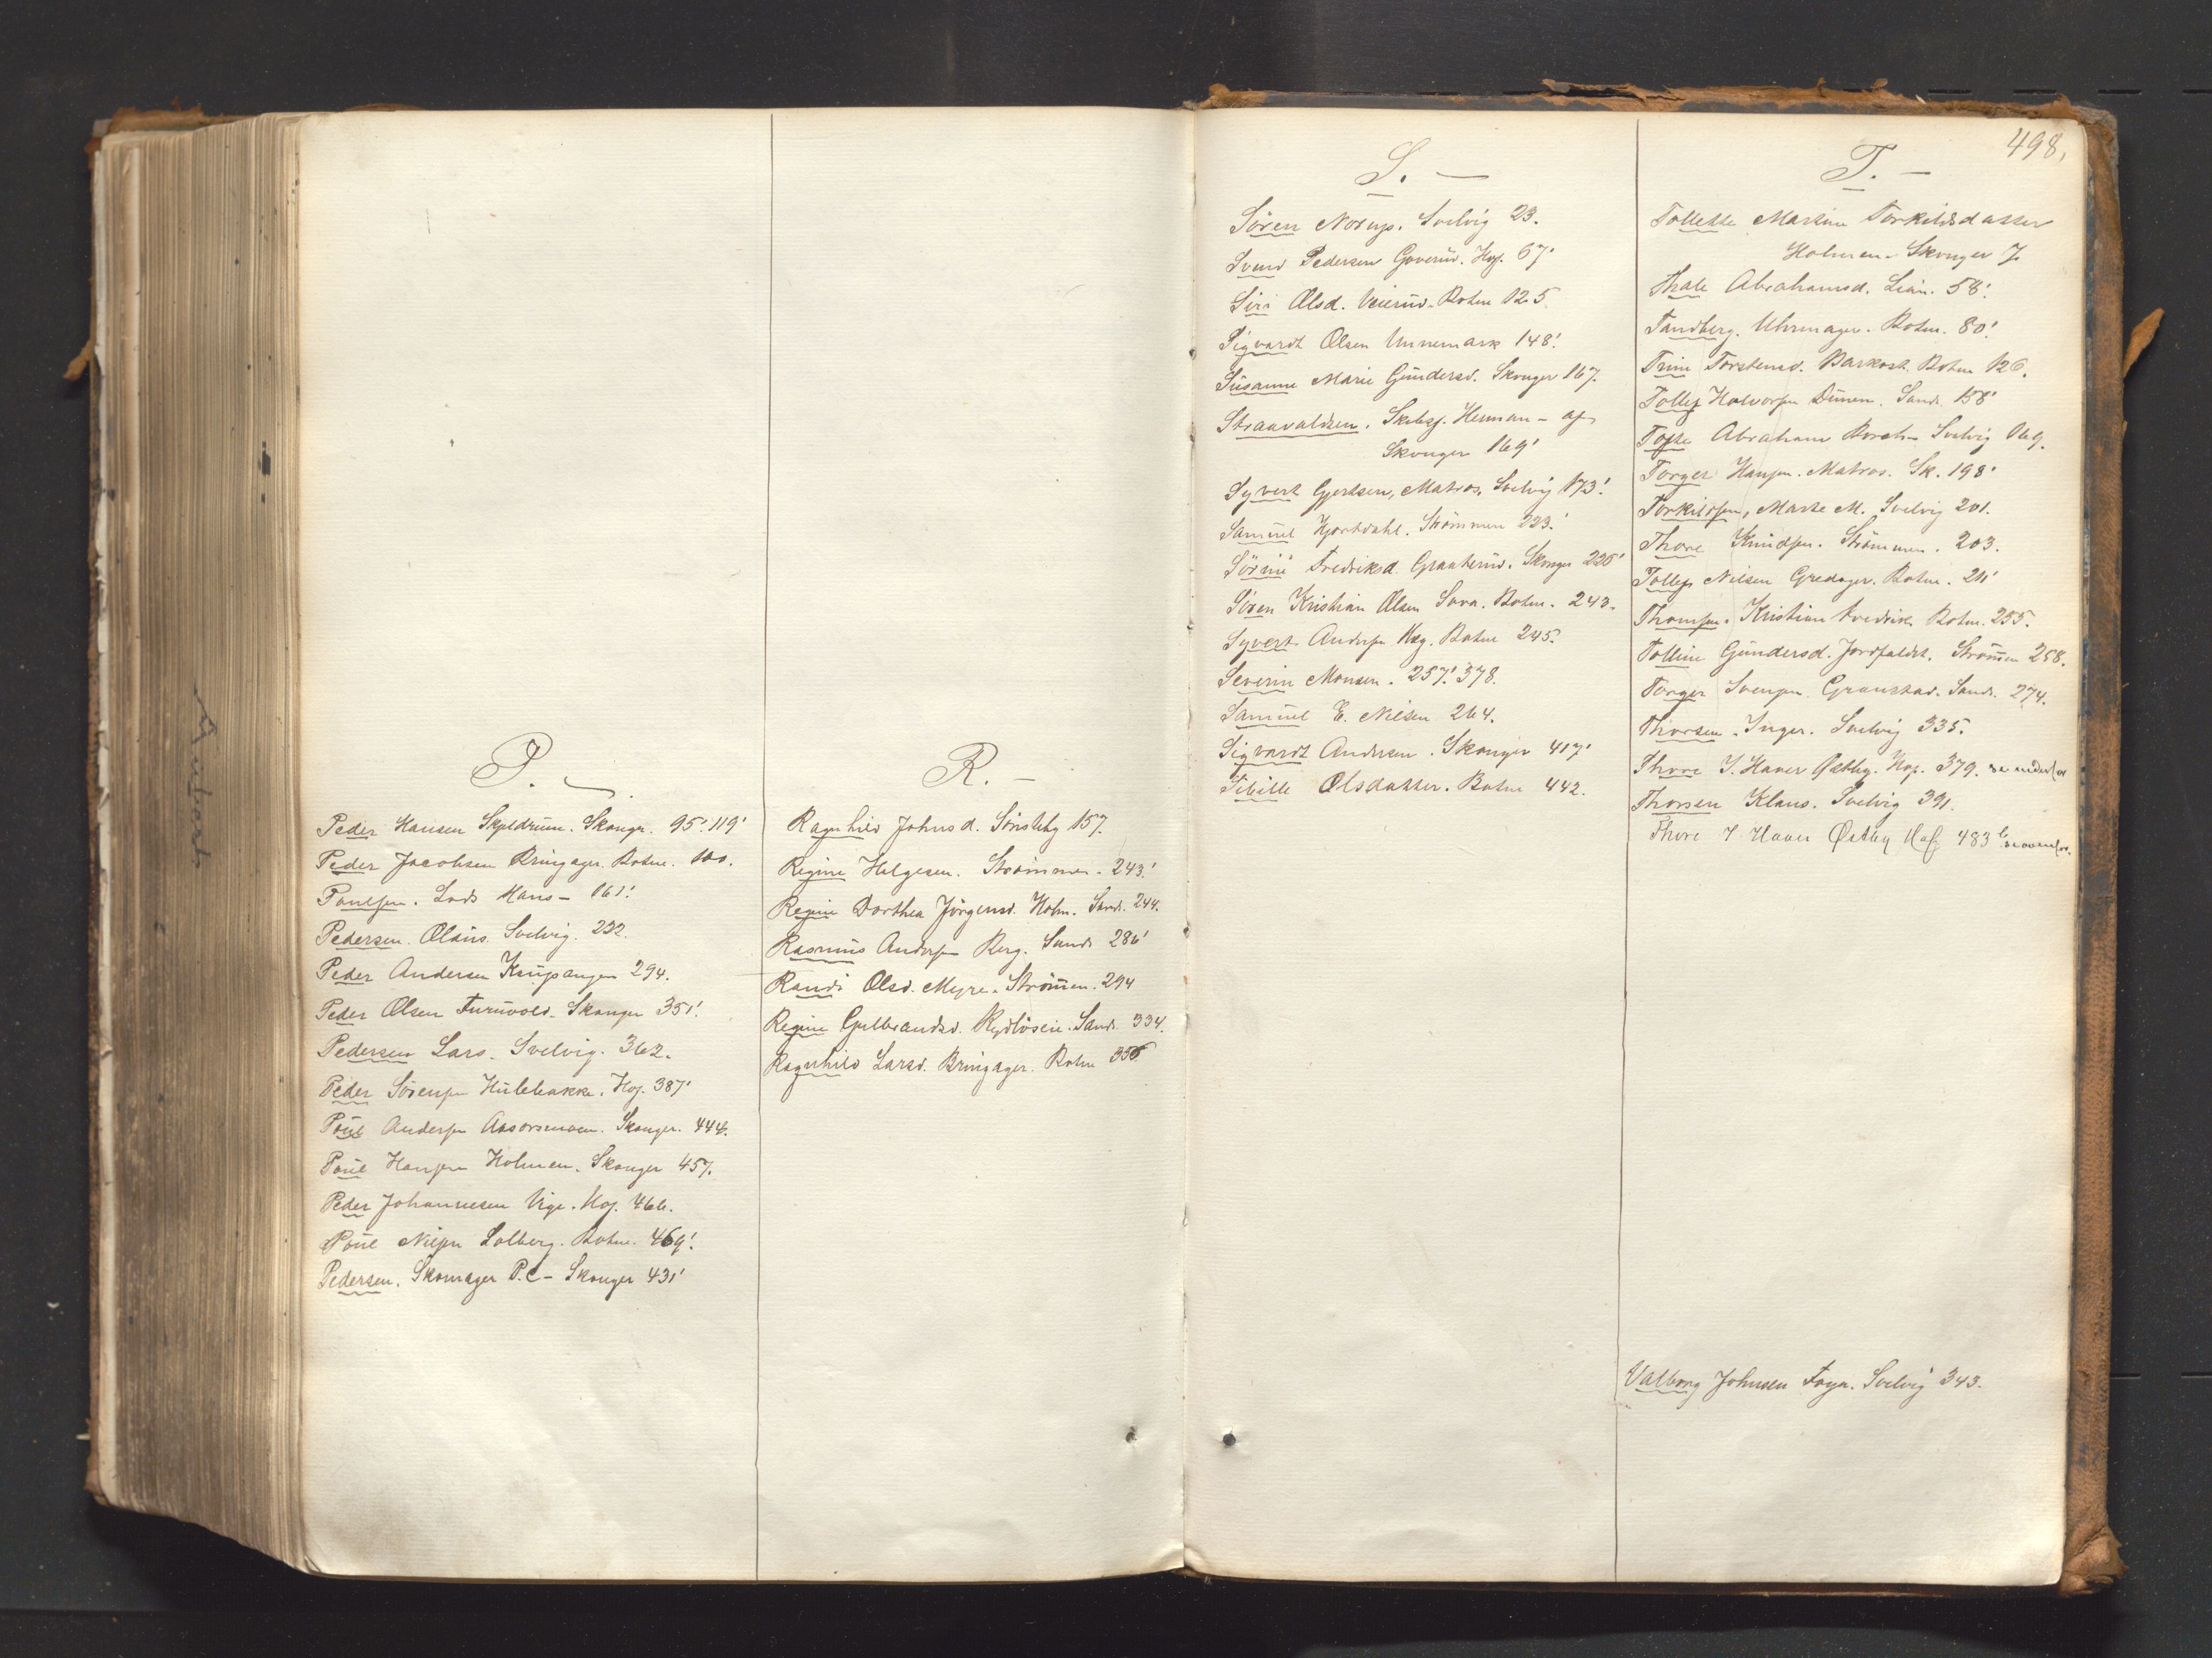 P.
Peder Hansen Skjeldrum. Skouger. 95'. 119'
Peder Jacobsen Bringager. Botne. 100.
Poulsen. Lods Hans – 161'.
Pedersen. Olaus. Svelvig. 232.
Peder Andersen Kaupangen 294.
Peder Olsen Furuvold. Skouger 351'.
Pedersen Lars. Svelvig. 362.
Peder Sörensen Hulebakke. Hof. 387'
Poul Andersen Aasorsmoen. Skouger. 444.
Poul Hansen Holmen. Skouger 457.
Peder Johannesen Vige. Hof. 466.
Poul Nilsen Solberg. Botne. 469'.
Pedersen. Skomager P.C – Skouger 431'
R. –
Ragnhild Johnsd. Sönsteby 157.
Regine Helgesen. Strömmen. 243'.
Regine Dorthea Jörgensd. Holm. Sand. 244.
Rasmus Andersen Berg. Sand. 286'
Randi Olsd. Myre. Strömmen. 294
Regine Gulbrandsd. Sand. 334.
Ragnhild Larsd. Bringager. Botne 356
498,
S. –
Sören Norup. Svelvig 23.
Svend Pedersen Goverud. Hof. 67'
Siri Olsd. Veierud. Botne 125.
Sigvardt Olsen Unnemark 148'.
Susanne Marie Gundersd. Skouger 167.
Straavaldsen. Skibsf. Herman – af
Skouger 169'
Syvert Gjertsen, Matros, Svelvig 173'.
Samuel Hjortdahl. Strömmen 223.'
Sörine Fredriksd. Graaterud. Skouger 226'
Sören Kristian Olsen Sova. Botne. 243.
Syvert Andersen Hæg. Botne 245.
Severin Monsen. 257'. 378.
Samuel E. Nilsen 264.
Sigvardt Andersen. Skouger 417'
Sibille Olsdatter. Botne 442.
T. –
Tollette Martine Torkildsdatter
Holmen – Skouger 7.
Thale Abrahamsd. Lian. 58'.
Tandberg. Uhrmager. Botne. 80'.
Trine Torstensd. Barkost. Botne 126.
Tollef Halvorsen Dunem. Sand. 158'
Tofte Abraham Borch – Svelvig 169.
Torger Hansen. Matros. Sk. 198'
Torkildsen, Marte M. Svelvig 201.
Thore Knudsen. Strömmen. 203.
Tollef Nilsen Gredager. Botne. 211'
Thomsen. Kristian Fredrik. Botne. 255.
Tolline Gundersd. Jordfaldet. Strömmen 258.
Torger Svensen Graustad. Sand. 274.
Thorsen. Inger. Svelvig 335.
Thore J. Haver Østby. Hof. 379. se nedenfor
Thorsen Klaus. Svelvig 391.
Thore J. Haver Østby Hof 483 b se ovenfor.
Valborg Johnsen Foyn. Svelvig 343.